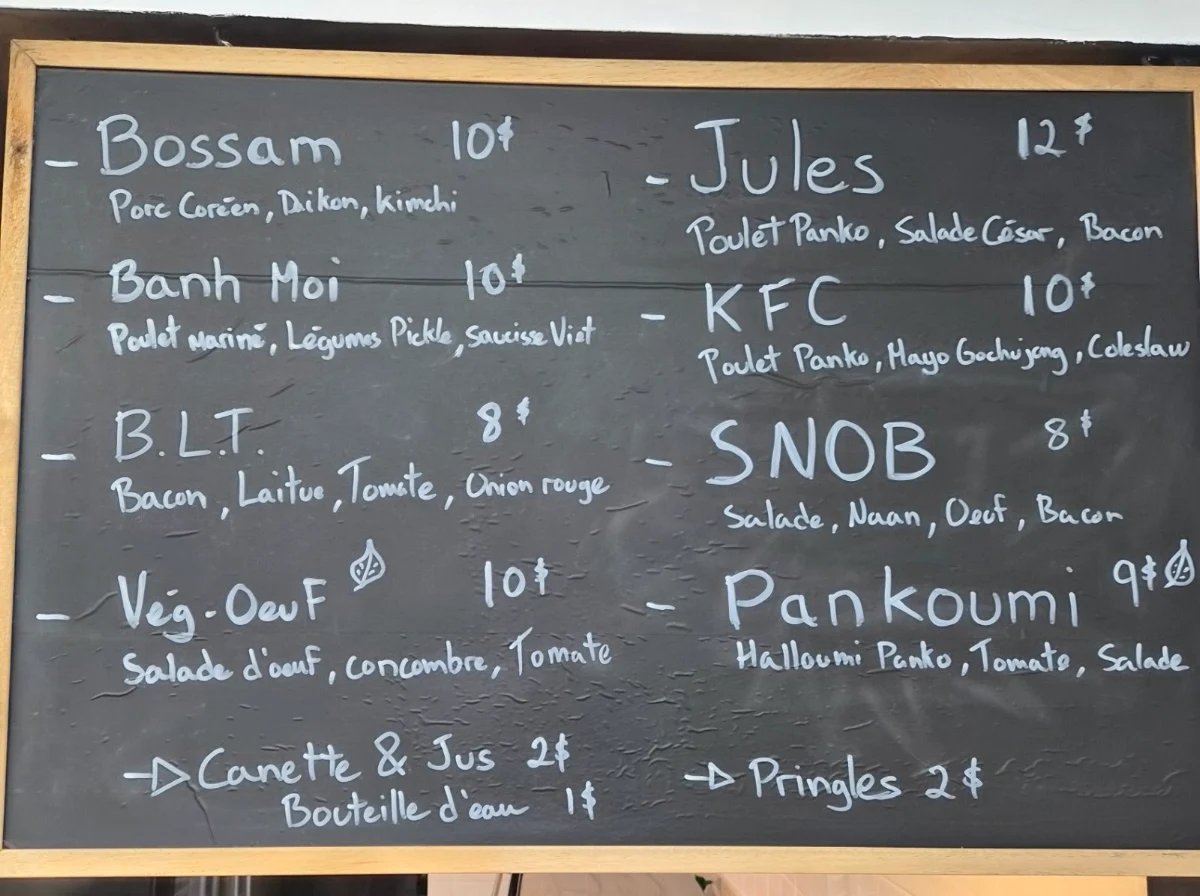 - Bossam 10$
Porc Coréen, Daikon, kimchi
- Banh Moi 10$
Poulet mariné, Légumes Pickle, saucisse Viet
- B.L.T. 8$
Bacon, Laitue, Tomate, Onion rouge
- Vég-Oeuf 10$
Salade d'oeuf, concombre, Tomate
→ Canette & Jus 2$
Bouteille d'eau 1$
- Jules 12$
Poulet Panko, Salade César, Bacon
- KFC 10$
Poulet Panko, Mayo Gochujang, Coleslaw
- SNOB 8$
Salade, Naan, Oeuf, Bacon
- Pankoumi 9$
Halloumi Panko, Tomate, Salade
→ Pringles 2$